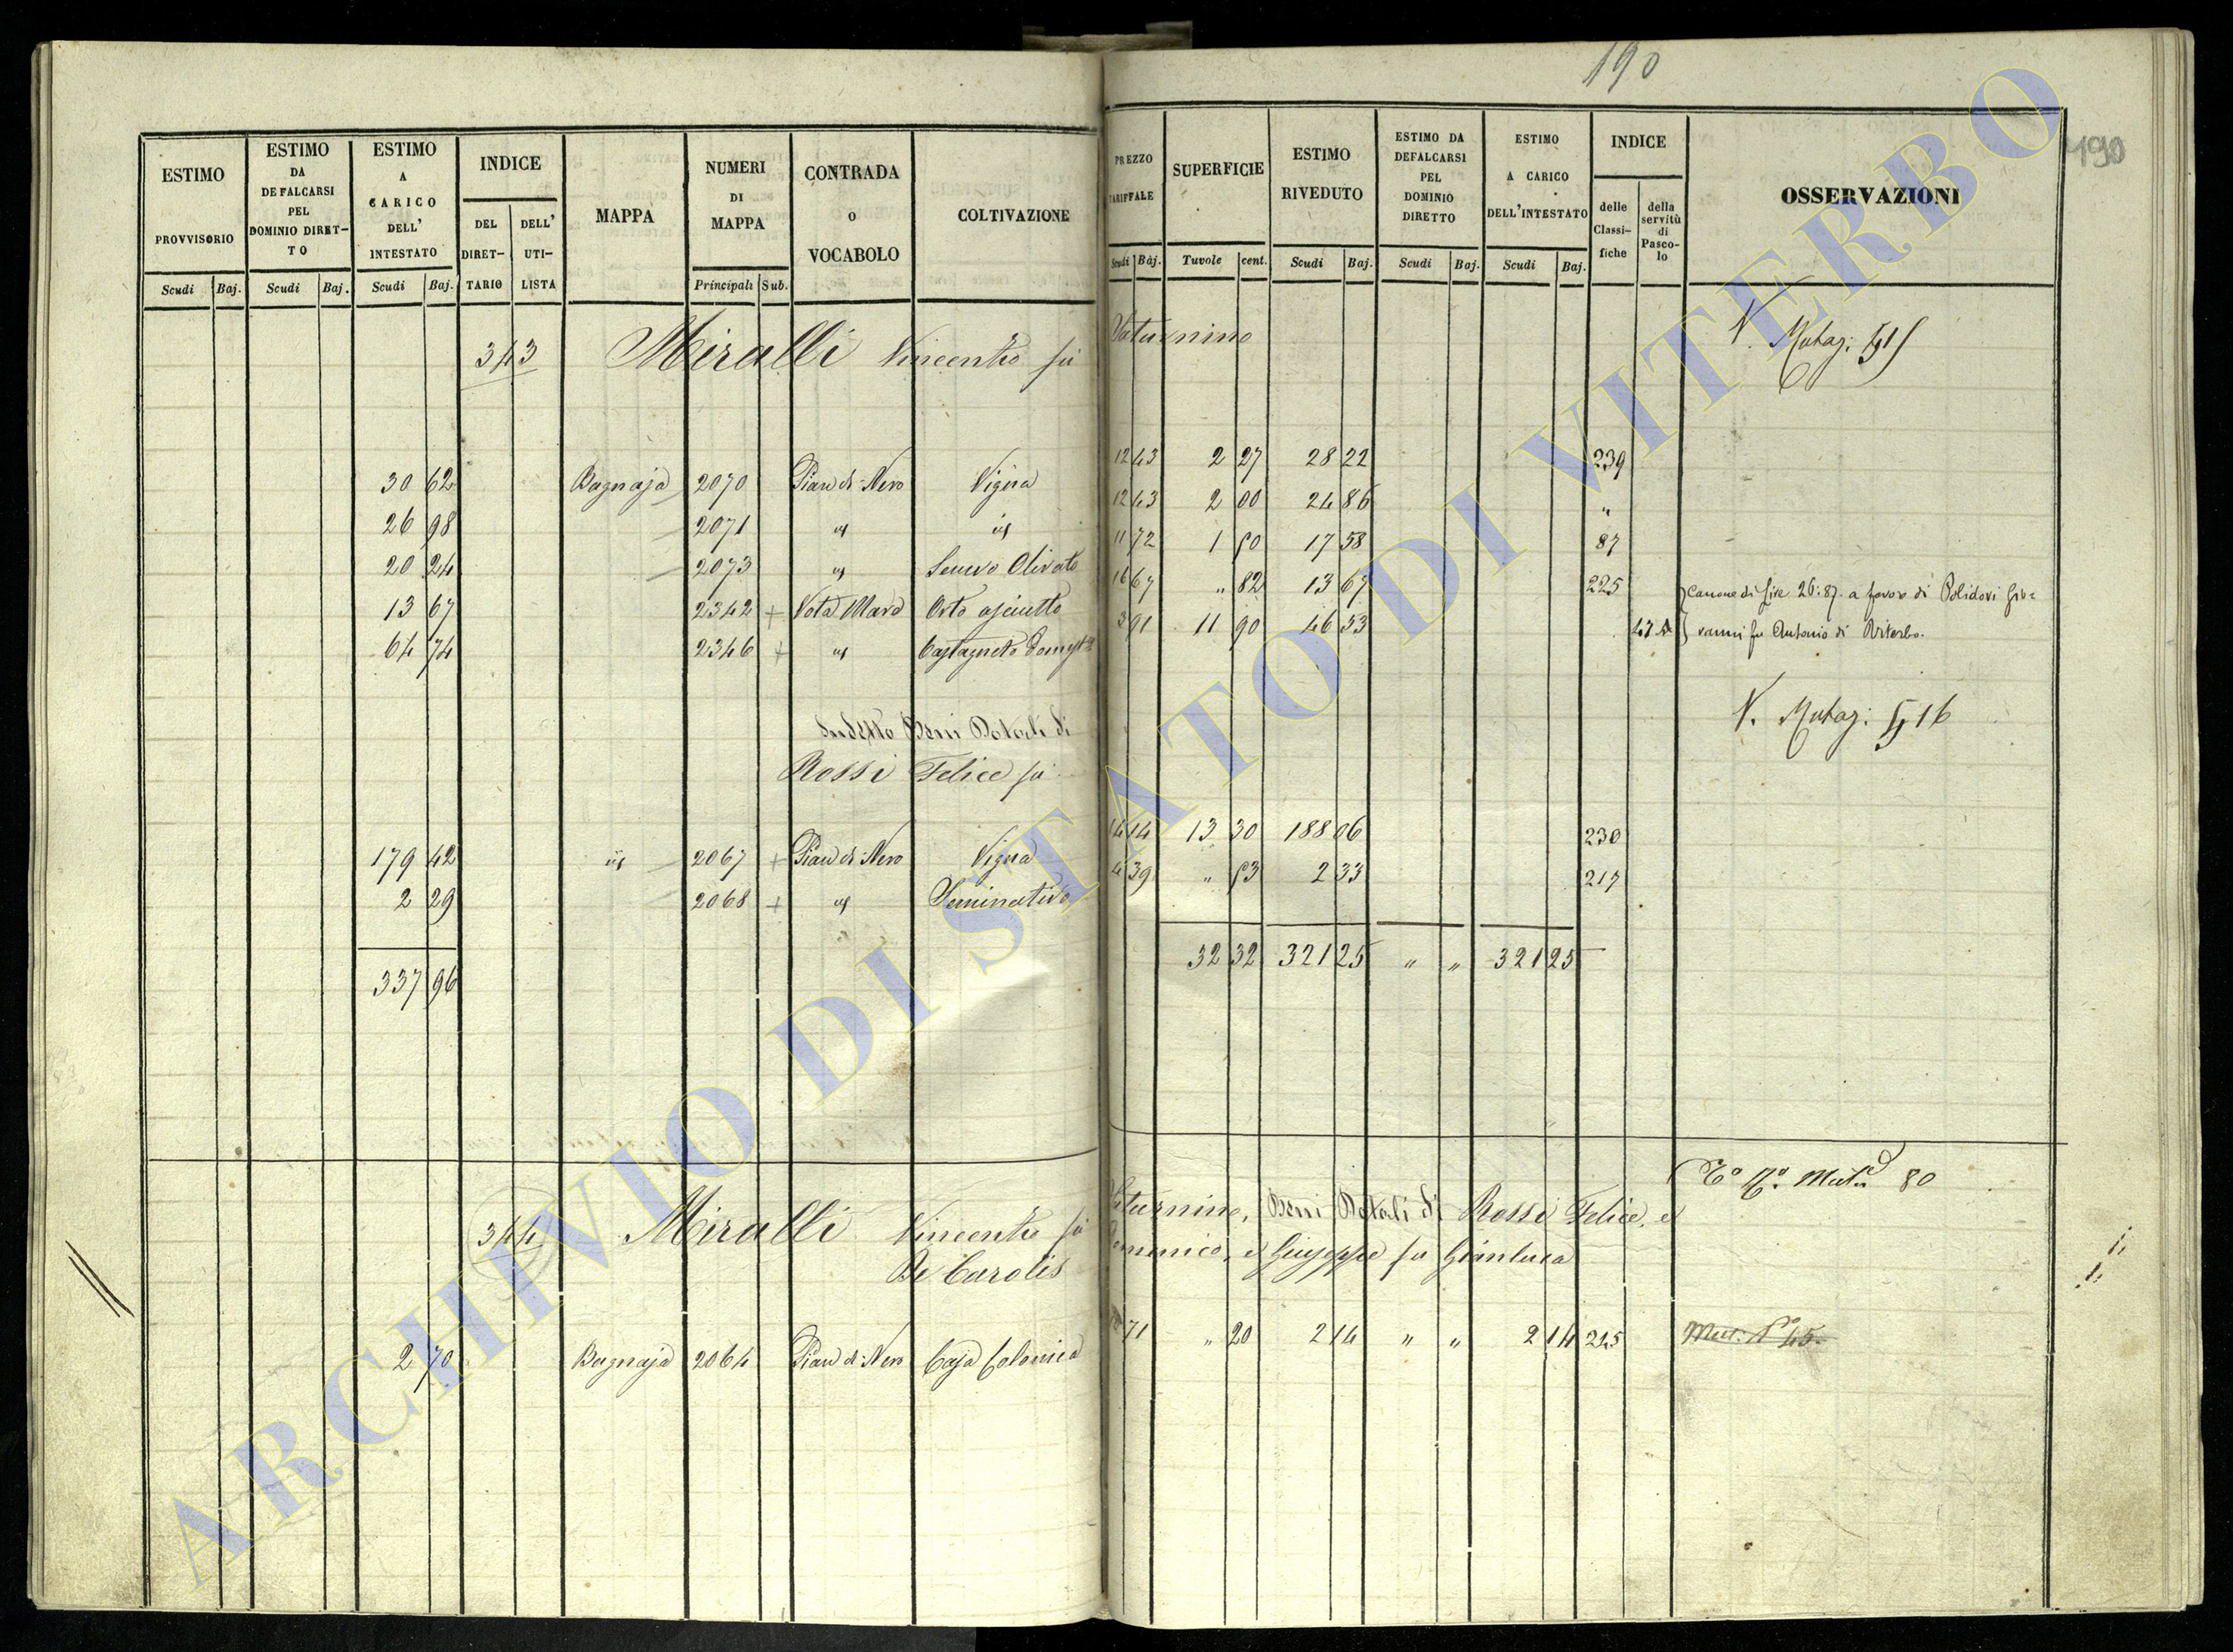 190
190
ESTIMO PROVVISORIO
ESTIMO DA DEFALCARSI PEL DOMINIO DIRETTO
ESTIMO A CARICO DELL' INTESTATO
INDICE
DEL DIRETTARIO
DELL' UTILISTA
MAPPA
NUMERI DI MAPPA
CONTRADA O VOCABOLO
COLTIVAZIONE
PREZZO TARIFFALE
SUPERFICIE
ESTIMO RIVEDUTO
ESTIMO DA DEFALCARSI PEL DOMINIO DIRETTO
ESTIMO A CARICO DELL'INTESTATO
INDICE
delle Classifiche
della servitù di Pascolo
OSSERVAZIONI
Scudi Baj. Scudi Baj. Scudi Baj. Principali Sub. Scudi Baj. Tavole cent. Scudi Baj. Scudi Baj. Scudi Baj.
343 Miralli Vincenzo fu Saturnino
30 62 Bagnaja 2070 Pian di Nero Vigna 12 43 2 27 28 22 239
26 98 2071 id id 12 43 2 00 24 86 "
20 24 2073 id Olivato 11 72 1 50 17 58 87
13 67 2342 + Orto asciutto 16 67 " 82 13 67 225 Canone di Lire 26:87. a favore di Polidori Gio=
64 74 2346 + id Castagneto 3 91 11 90 46 53 vanni fu Antonio di Viterbo.
Sudetto Beni Dotali di
Rossi Felice fu
179 42 id 2067 + Pian di Nero Vigna 14 14 13 30 188 06 230
2 29 2068 + id Seminativo 4 39 " 53 2 33 217
337 96 32 32 321 25 " " 321 25
344 Miralli Vincenzo fu Saturnino, Beni Dotali di Rossi Felice, e
De Carolis Domenico, e Giuseppe fu Gianluca
2 70 Bagnaja 2064 Pian di Nero Casa Colonica 71 " 20 2 14 " " 2 14 215
ARCHIVIO DI STATO DI VITERBO